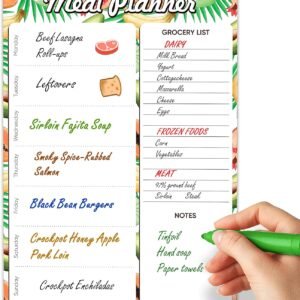 Meal Planner
Monday
Beef Lasagna
Roll-ups
Tuesday
Leftovers
Wednesday
Sirloin Fajita Soup
Thursday
Smoky Spice-Rubbed
Salmon
Friday
Black Bean Burgers
Saturday
Crockpot Honey Apple
Pork Loin
Crockpot Enchiladas
GROCERY LIST
DAIRY
Milk Bread
Yogurt
Cottagecheese
Mozzarella
Cheese
Eggs
FROZEN FOODS
Corn
Vegetables
MEAT
97% ground beef
Sirloin Steak
NOTES
Tinfoil
Hand soap
Paper towels